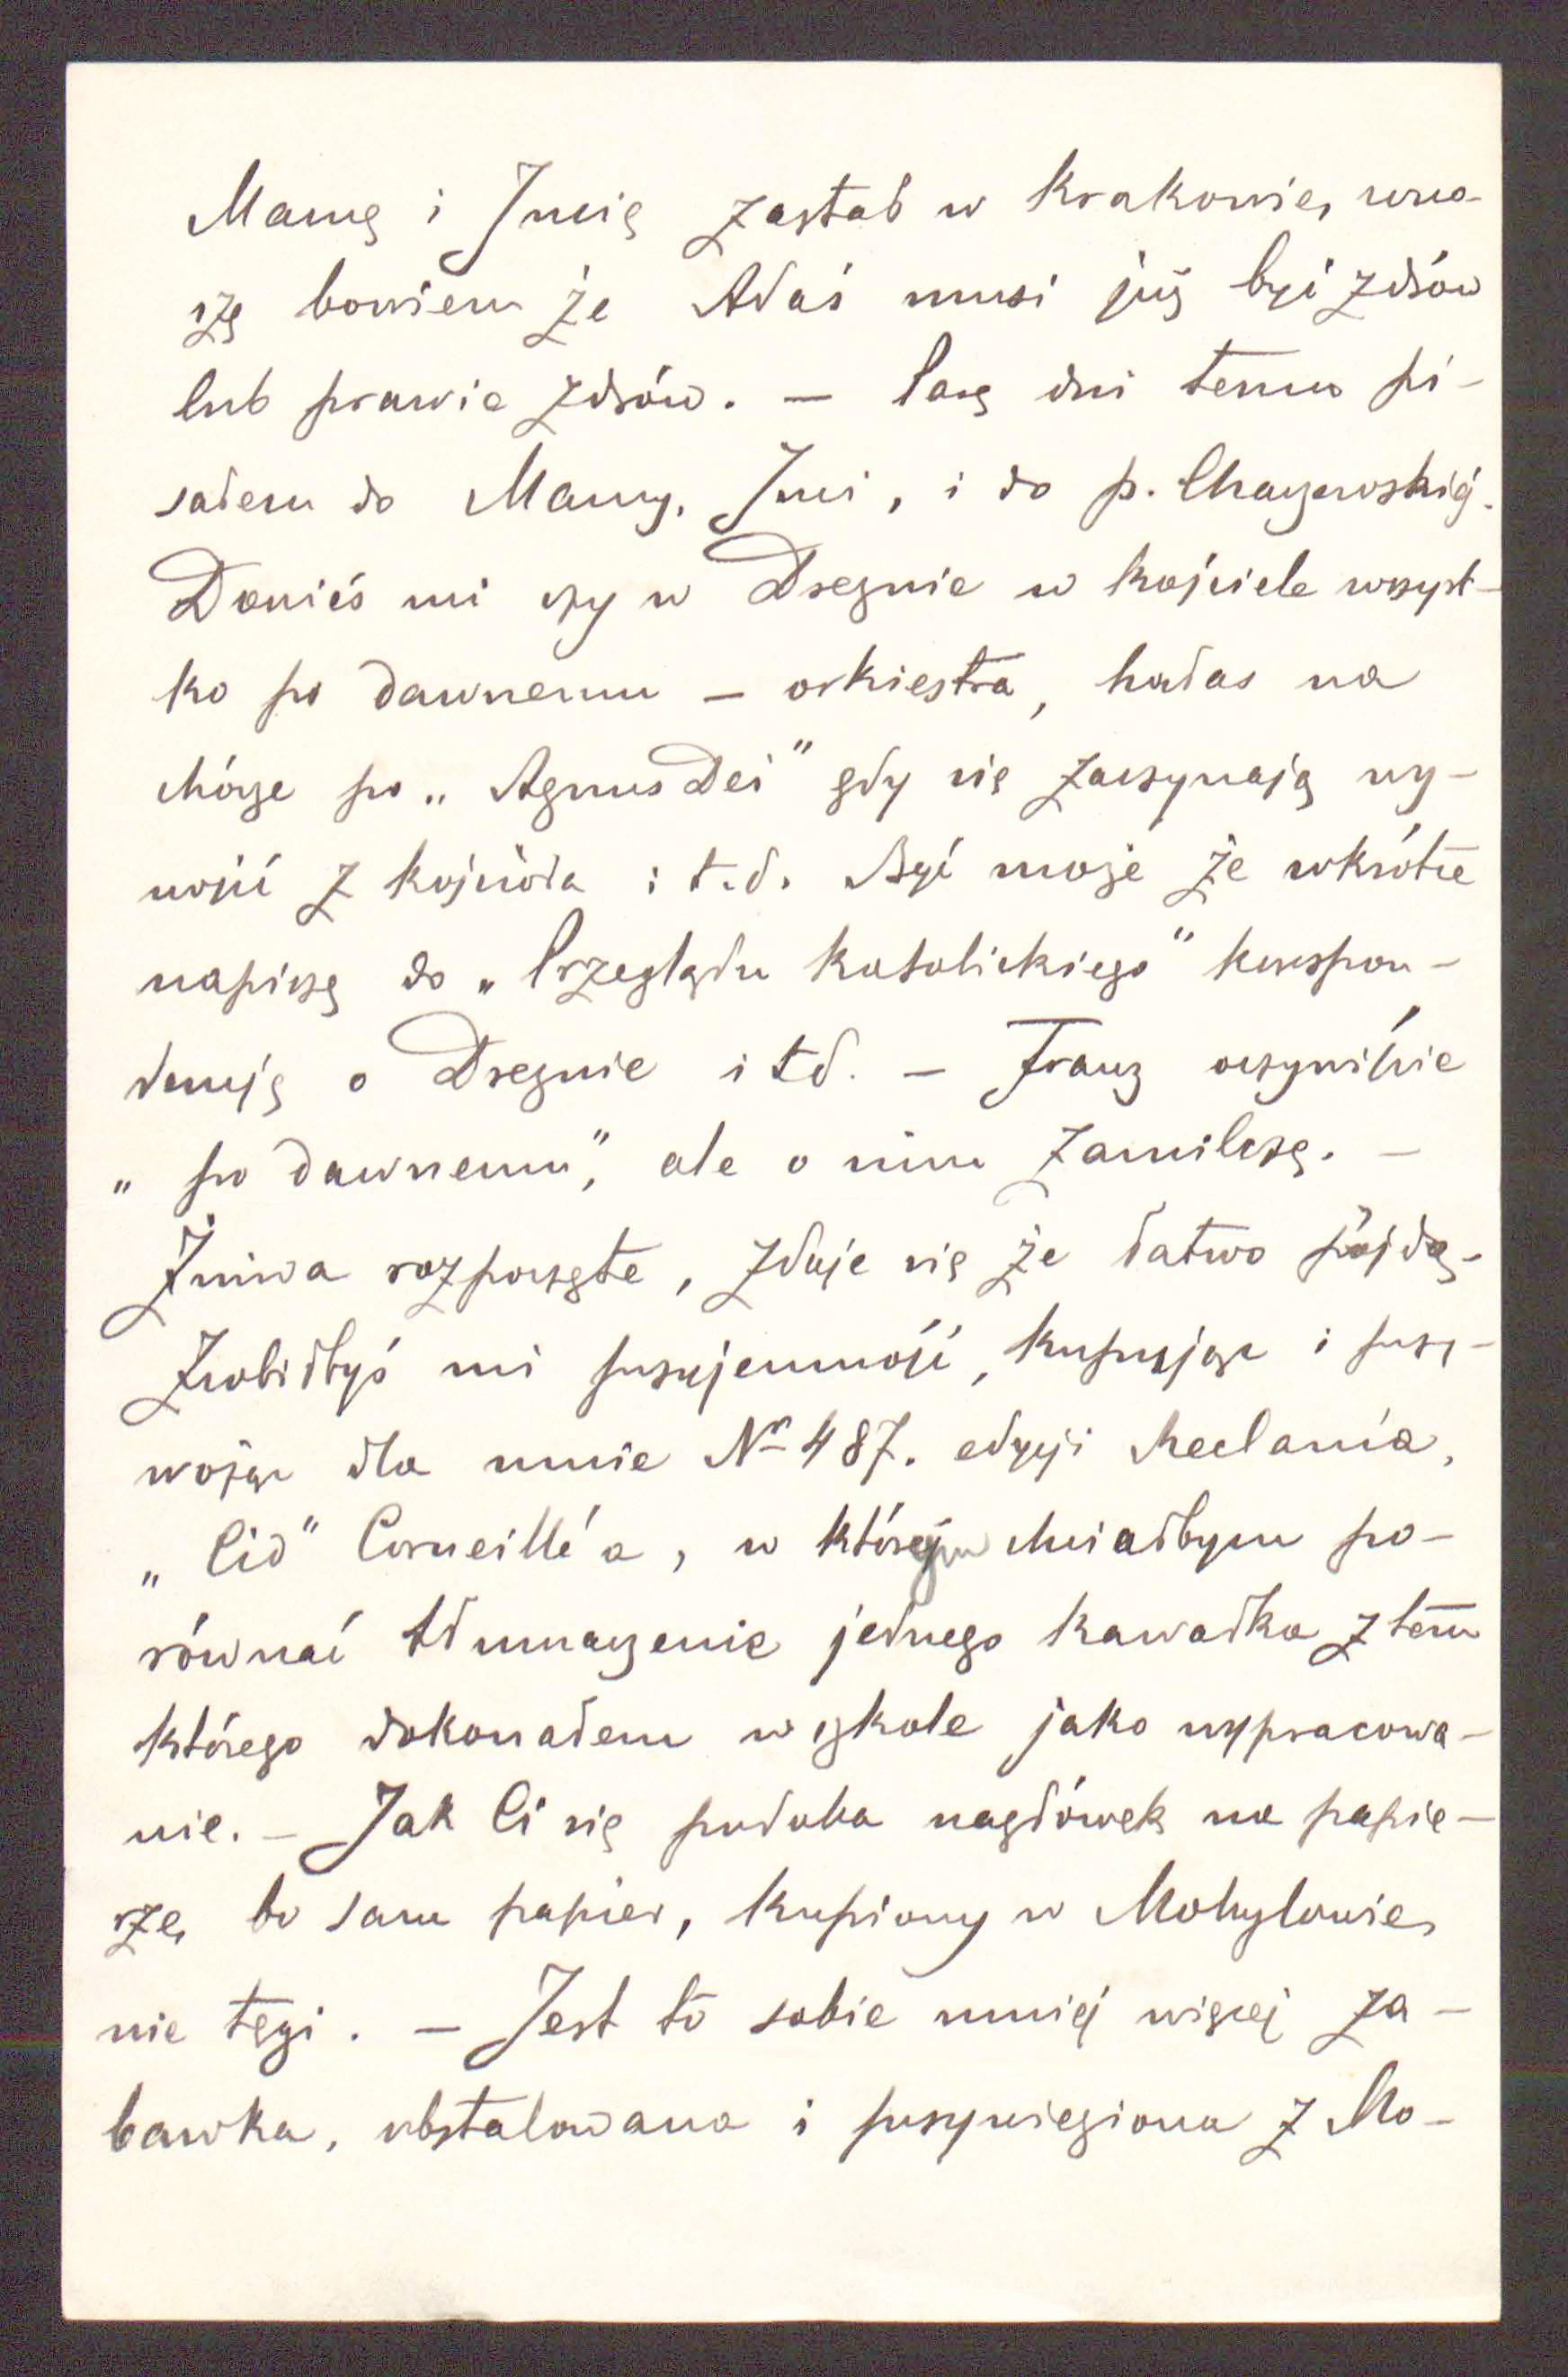 Mamę i Jucię zastał w Krakowie, wno-
szę bowiem że Adaś musi już być zdrów
lub prawie zdrów. — Parę dni temu pi-
sałem do Mamy, Juci, i do p.
Donieś mi czy w Dreznie w kościele wszyst-
ko po dawnemu — orkiestra, hałas na
chórze po „Agnus Dei" gdy się zaczynają wy-
nosić z kościoła i t.d. Być może że wkrótce
napiszę do „Przeglądu Katolickiego" korespon-
dencję o Dreznie i t.d. — Franz oczywiście
„po dawnemu", ale o nim zamilczę. —
Żniwa rozpoczęte, zdaje się że łatwo pójdą.
Zrobiłbyś mi przyjemność, kupując i przy-
wożąc dla mnie Nr 487. edycji Reclam'a,
„Cid" Corneille'a, w którym chciałbym po-
równać tłumaczenie jednego kawałka z tem
którego dokonałem w szkole jako wypracowa-
nie. — Jak Ci się podoba nagłówek na papie-
rze, bo sam papier, kupiony w Mohylowie,
nie tęgi. — Jest to sobie mniej więcej za-
bawka, obstalowana i przywieziona z Mo-